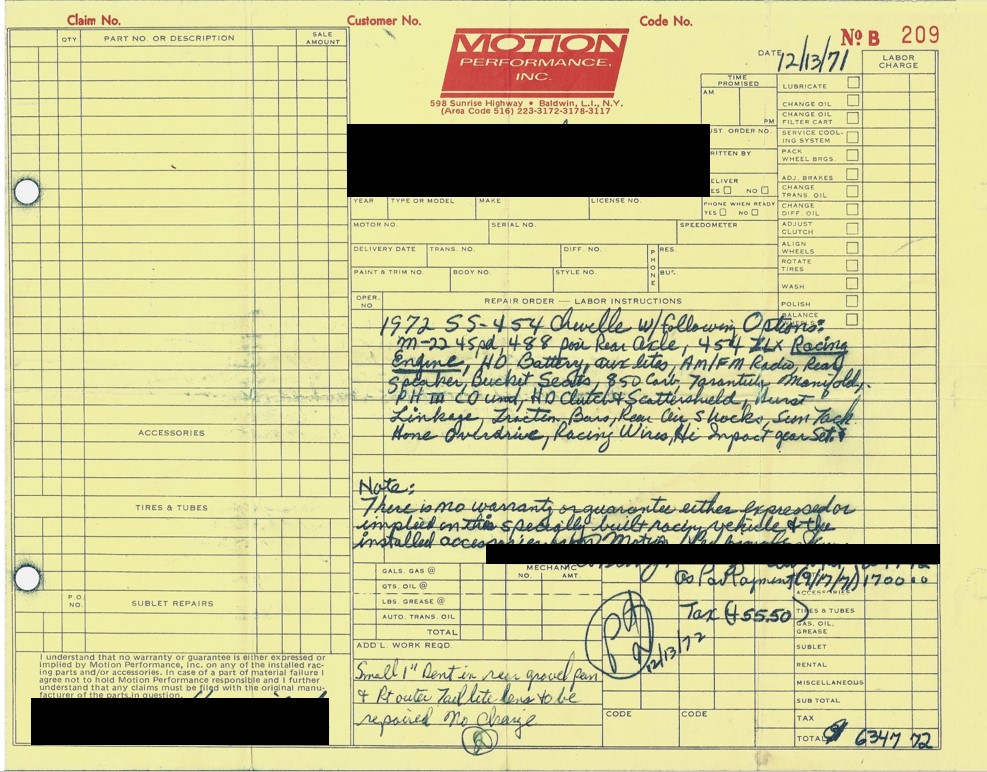 Claim No. Customer No. Code No.
No B 209
QTY. PART NO. OR DESCRIPTION SALE AMOUNT
MOTION
PERFORMANCE,
INC.
598 Sunrise Highway • Baldwin, L.I., N.Y.
(Area Code 516) 223-3172-3178-3117
DATE 12/13/71
LABOR CHARGE
TIME PROMISED
AM
PM
UST. ORDER NO.
RITTEN BY
ELIVER
ES NO
PHONE WHEN READY
YES NO
LUBRICATE
CHANGE OIL
CHANGE OIL FILTER CART
SERVICE COOLING SYSTEM
PACK WHEEL BRGS.
ADJ. BRAKES
CHANGE TRANS. OIL
CHANGE DIFF. OIL
ADJUST CLUTCH
ALIGN WHEELS
ROTATE TIRES
WASH
POLISH
BALANCE
YEAR TYPE OR MODEL MAKE LICENSE NO.
MOTOR NO. SERIAL NO. SPEEDOMETER
DELIVERY DATE TRANS. NO. DIFF. NO. PHONE RES.
PAINT & TRIM NO. BODY NO. STYLE NO. BUS.
OPER. NO. REPAIR ORDER — LABOR INSTRUCTIONS
1972 SS-454 Chevelle W/following Options:
M-22 4spd, 488 posi Rear Axle, 454 ZLX Racing
Engine, HD Battery, aux lites, AM/FM Radio, Rear
Speaker, Bucket Seats, 850 Carb, Tarantula Manifold,
PH III CD, HD Clutch & Scattershield, Hurst
Linkage, Traction Bars, Rear Air Shocks, Sun Tach.
Hone Overdrive, Racing Wires, Hi Impact gear Set.
Note:
There is no warranty or guarantee either expressed or
implied on this specially built racing vehicle & the
installed accessories Motion
ACCESSORIES
TIRES & TUBES
P O NO. SUBLET REPAIRS
GALS. GAS @
QTS. OIL @
LBS. GREASE @
AUTO. TRANS. OIL
TOTAL
MECHANIC
NO. AMT.
(9/17/71) 1700 00
Tax (455.50)
12/13/72
ACCESSORIES
TIRES & TUBES
GAS, OIL, GREASE
SUBLET
RENTAL
MISCELLANEOUS
SUB TOTAL
TAX
TOTAL 6347 72
ADD'L. WORK REQD.
Small 1" Dent in rear gravel pan
& Rt outer Tail lite lens to be
repaired No Charge
CODE CODE
I understand that no warranty or guarantee is either expressed or
implied by Motion Performance, Inc. on any of the installed rac-
ing parts and/or accessories. In case of a part of material failure i
agree not to hold Motion Performance responsible and I further
understand that any claims must be filed with the original manu-
facturer of the parts in question.